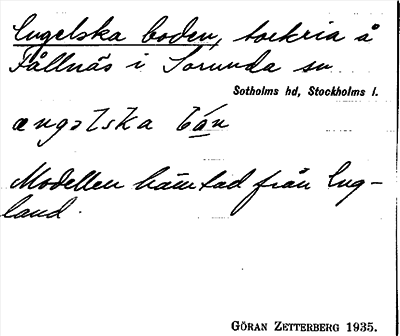 Engelska boden, torkria å
Fållnäs i Sorunda sn
Sotholms hd, Stockholms l.
æŋgəlska bån
Modellen hämtad från Eng-
land.
GÖRAN ZETTERBERG 1935.